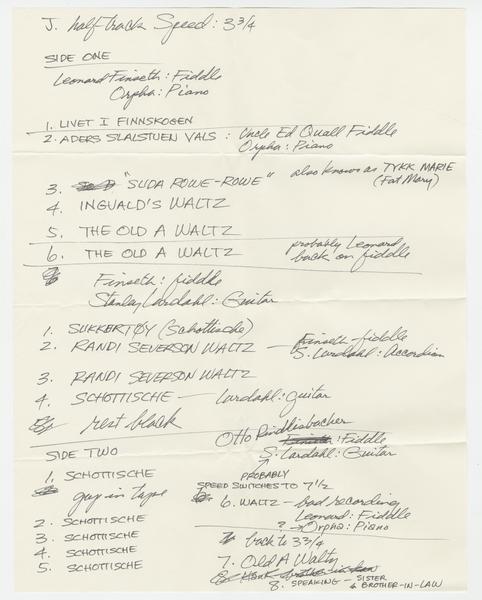 J. half track Speed: 3 3/4
SIDE ONE
Leonard Finseth: Fiddle
Orpha: Piano
1. LIVET I FINNSKOGEN
2. ADERS SLALSTUEN VALS : Uncle Ed Quall Fiddle
Orpha: Piano
also known as TYKK MARIE
(Fat Mary)
3. "SUDA ROWE-ROWE"
4. INGUALD'S WALTZ
5. THE OLD A WALTZ
6. THE OLD A WALTZ
probably Leonard
back on fiddle
Finseth: fiddle
Stanley Lardahl: Guitar
1. SUKKERTØY (Schottische)
2. RANDI SEVERSON WALTZ — Finseth-fiddle
S. Lardahl: Accordian
3. RANDI SEVERSON WALTZ
4. SCHOTTISCHE — Lardahl: guitar
rest black
SIDE TWO
Otto Rindlisbacher
: Fiddle
S. Lardahl: Guitar
PROBABLY
1. SCHOTTISCHE
gap in tape
2. SCHOTTISCHE
3. SCHOTTISCHE
4. SCHOTTISCHE
5. SCHOTTISCHE
SPEED SWITCHES TO 7 1/2
6. WALTZ — bad recording
Leonard: Fiddle
? → Orpha: Piano
back to 3 3/4
7. Old A Waltz
8. SPEAKING — SISTER
& BROTHER-IN-LAW